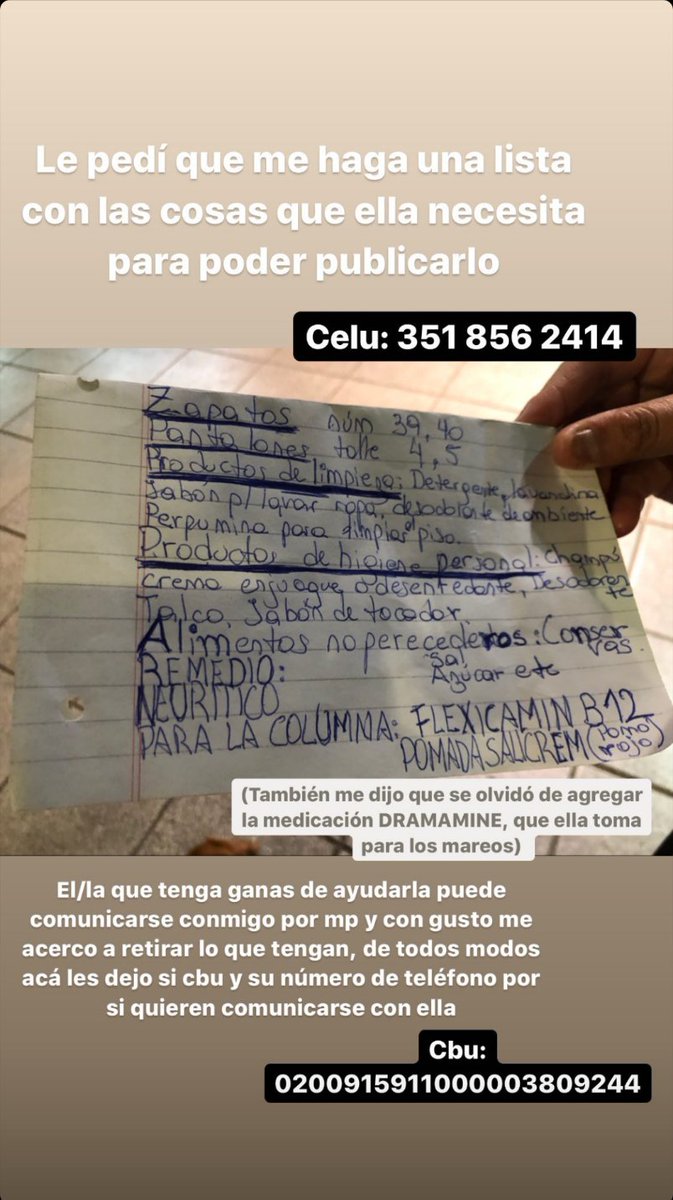 Le pedí que me haga una lista
con las cosas que ella necesita
para poder publicarlo
Celu: 351 856 2414
Zapatos núm 39, 40
Pantalones talle 4, 5
Productos de limpieza: Detergente, lavandina
Jabón p/lavar ropa, desodorante de ambiente
Perpumina para limpiar piso.
Productos de higiene personal: Champú
crema enjuague o desenredante, Desodoran
te
Talco, Jabón de tocador.
Alimentos no perecederos: Conser
vas.
Sal
Azúcar etc
REMEDIO:
NEURITICO
PARA LA COLUMNA: FLEXICAMIN B12
POMADA SALICREM (POMO
rojo)
(También me dijo que se olvidó de agregar
la medicación DRAMAMINE, que ella toma
para los mareos)
El/la que tenga ganas de ayudarla puede
comunicarse conmigo por mp y con gusto me
acerco a retirar lo que tengan, de todos modos
acá les dejo si cbu y su número de teléfono por
si quieren comunicarse con ella
Cbu:
0200915911000003809244